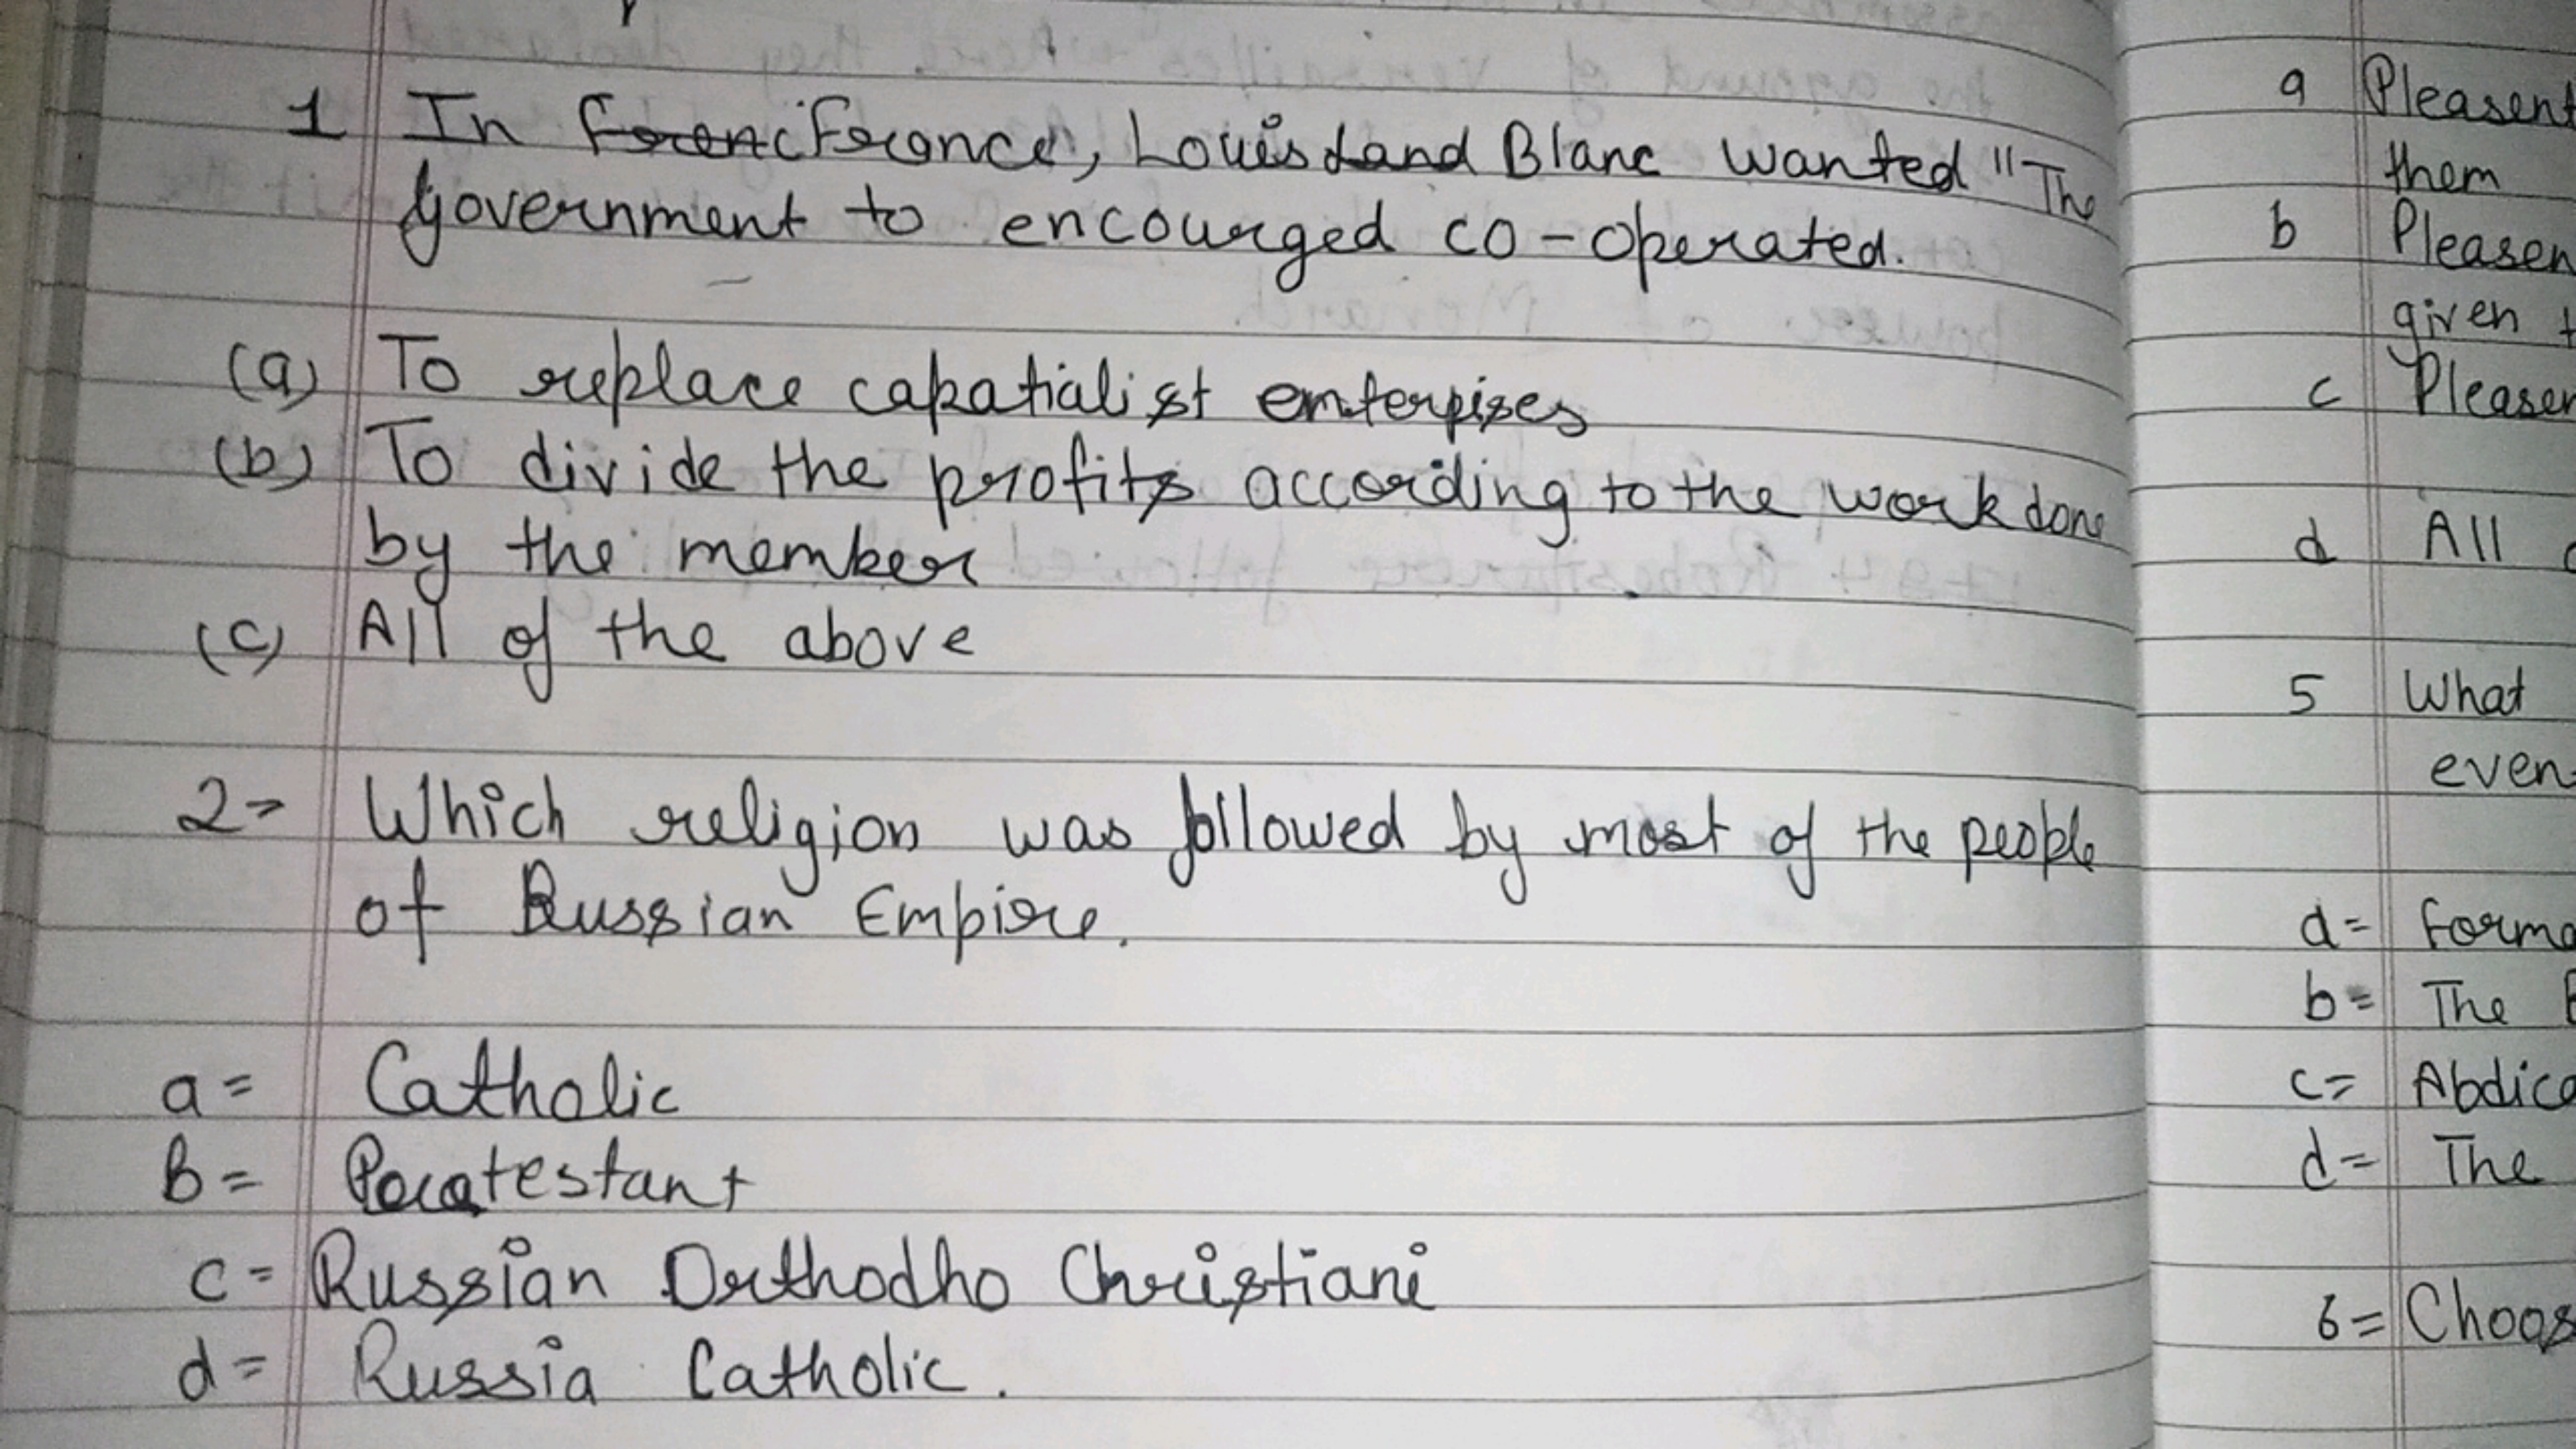 1 In France, Louis Blanc wanted "The
Government to encourged co-operated.
(a) To replace capatialist enterpises
(b) To divide the profits according to the work done
by the member
(c) All of the above
2= Which religion was followed by most of the people
of Russian Empire.
a= Catholic
B= Protestant
c= Russian Orthodho Christiani
d= Russia Catholic.
a Pleasent
them
b Pleasen
given
c Pleasen
d All
5 What
even
a= Forma
b= The
c= Abdica
d= The
6= Choos